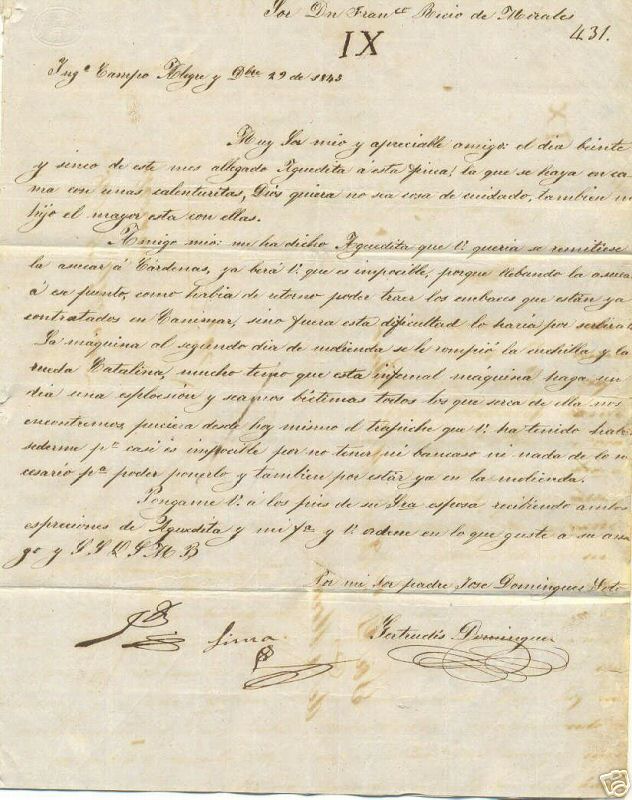 Sor Dn Franco Ricio de Morales
431.
IX
Ingo Campo Alegre y Dbre 29 de 1843
Muy Sor mio y apreciable amigo: el dia beinte
y sinco de este mes allegado Aguedita a esta finca, la que se haya en ca
ma con unas calenturitas, Dios quiera no sea cosa de cuidado, tambien mi
hijo el mayor esta con ellas.
Amigo mio: me ha dicho Aguedita que V. queria se remitiese
la asucar á Cárdenas, ya berá V. que es imposible, porque llebando la asucar
á ese punto, como habia de retorno poder traer los embaces que están ya
contratados en Canimar, sino fuera esta dificultad lo haria por serbirá
La máquina al segundo dia de molienda se le rompió la cuchilla y la
rueda Catalina, mucho temo que esta infernal máquina haga un
dia una esplocsión y seamos bictimas todos los que serca de ella nos
encontremos, pusiera desde hoy mismo el trapiche que V. ha tenido
sederme po casi es imposible por no tener ni bancaso ni nada de lo ne
cesario pa poder ponerlo y tambien por estár ya en la molienda.
Pongame V. á los pies de su Sra esposa recibiendo ambos
espreciones de Aguedita y mi fa y V. ordene en lo que guste a su ami
go y S. S. Q. S. M. B
Por mi Sor padre Jose Dominguez
Gertrudis Dominguez